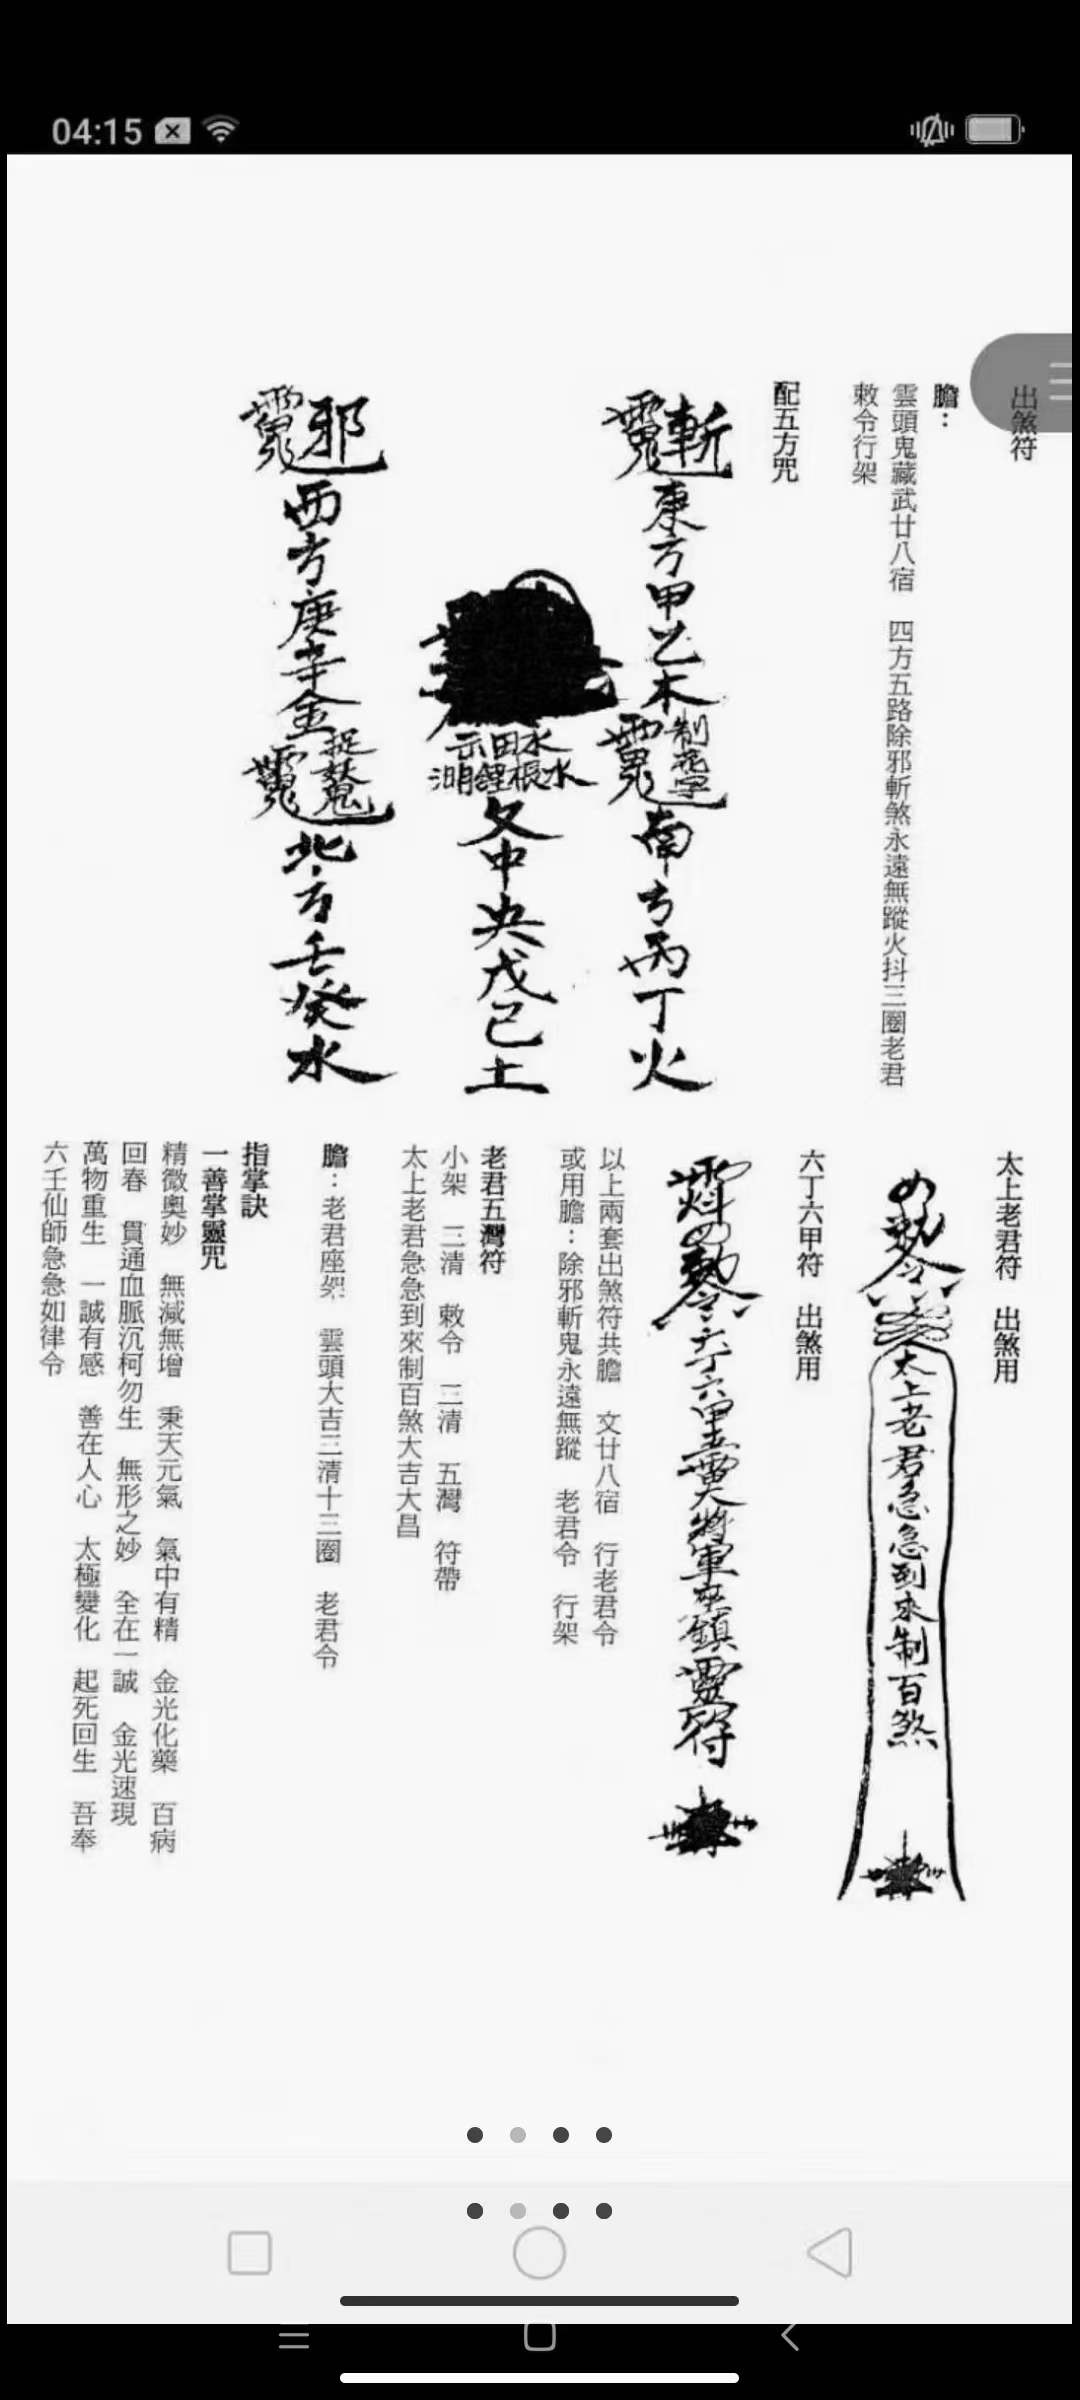 04:15
出煞符
膽：
雲頭鬼藏武廿八宿　四方五路除邪斬煞永遠無蹤火抖三圈老君
敕令行架
配五方咒
斬
東方甲乙木
制
南方丙丁火
水田示
水根鯉湖
中央戊己土
邪
西方庚辛金
捉
北方壬癸水
太上老君符　出煞用
太上老君急急到來制百煞
六丁六甲符　出煞用
六丁六甲
大將軍
鎮
符
以上兩套出煞符共膽　文廿八宿　行老君令
或用膽：除邪斬鬼永遠無蹤　老君令　行架
老君五灣符
小架　三清　敕令　三清　五灣　符帶
太上老君急急到來制百煞大吉大昌
膽：老君座架　雲頭大吉三清十三圈　老君令
指掌訣
一善掌靈咒
精微奧妙　無減無增　秉天元氣　氣中有精　金光化藥　百病
回春　貫通血脈沉柯勿生　無形之妙　全在一誠　金光速現
萬物重生　一誠有感　善在人心　太極變化　起死回生　吾奉
六壬仙師急急如律令